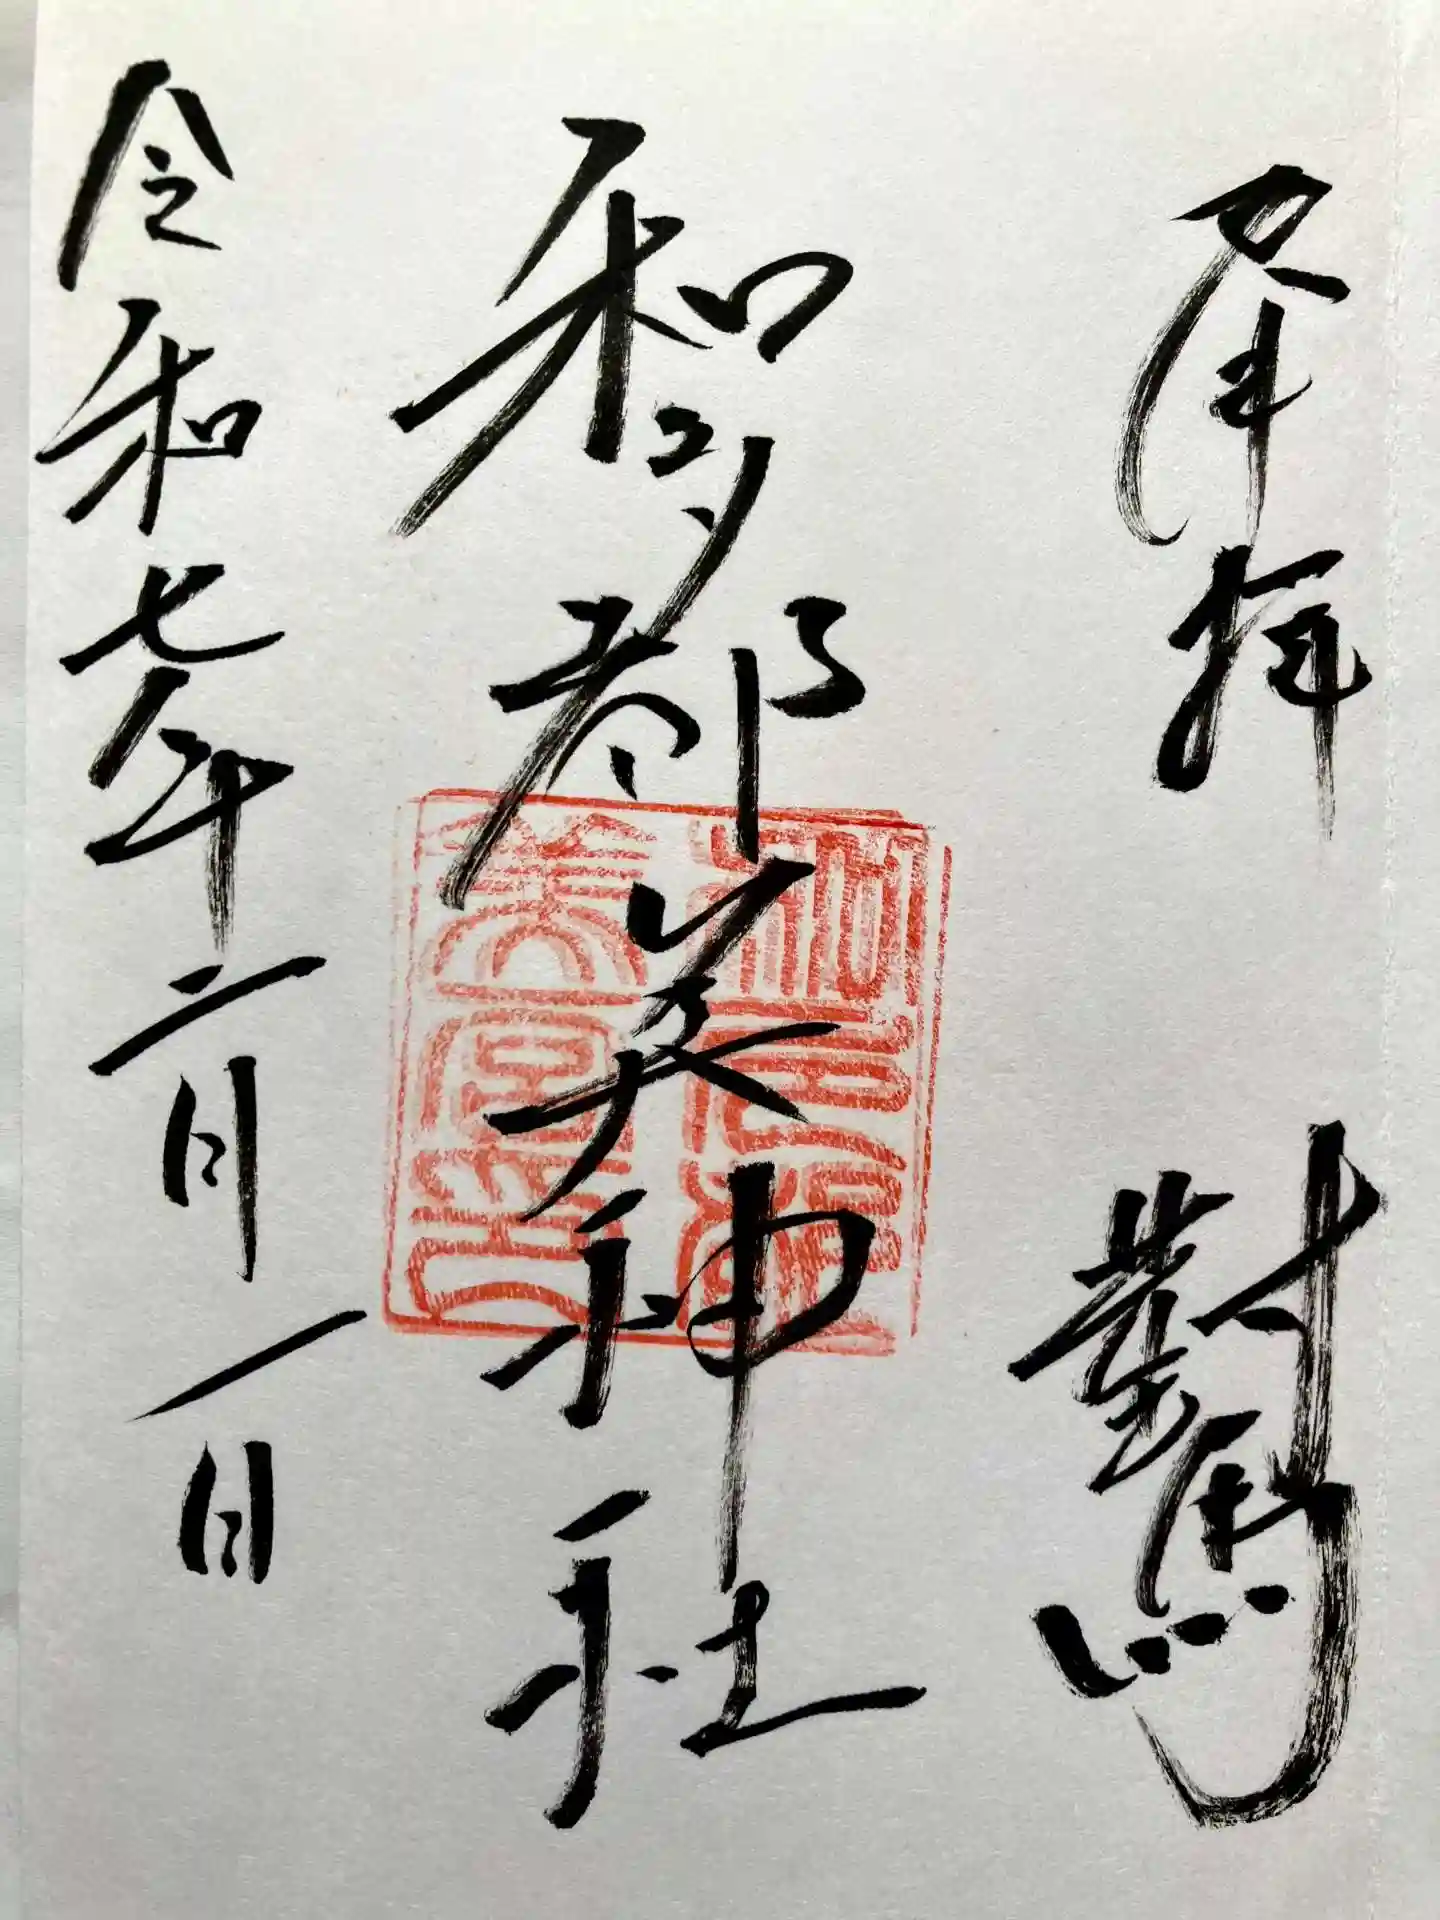 奉拝 對馬
和多都美神社
令和七年二月一日